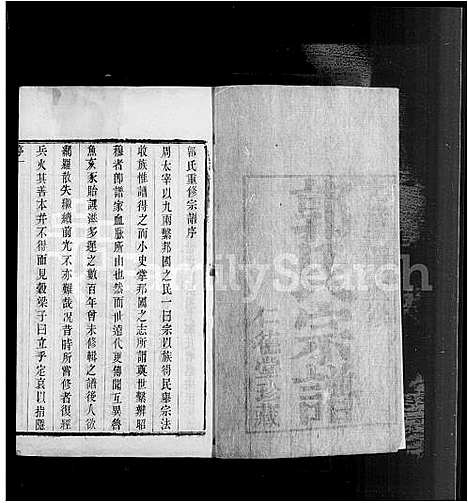 郭氏宗譜
仁德堂珍藏
郭氏重修宗譜序
周太宰以九兩繫邦國之民一曰宗以族得民舉宗法
敢族惟譜得之而小史掌邦國之志所謂奠世繫辨昭
穆者卽譜家血脈所由也然而世遠代更傳聞互異魯
魚亥豕貽誤滋多運之數百年曾未修輯之譜後人欲
網羅散失纘續前光不亦難哉况昔時所嘗修者復經
兵火其善本幷不得而見穀梁子曰立乎定哀以指隱
序一
FamilySearch